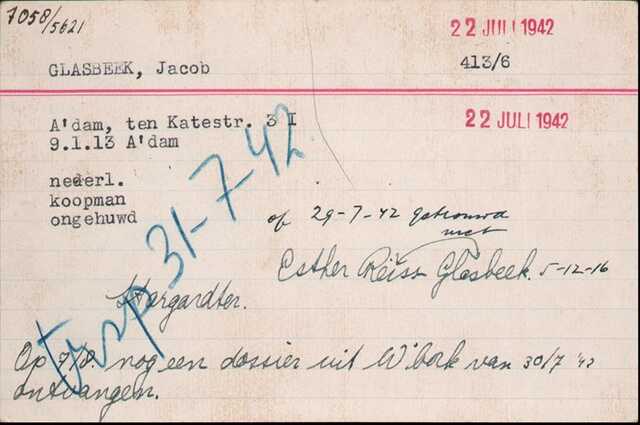 7058/5621
22 JULI 1942
GLASBEEK, Jacob
413/6
A'dam, ten Katestr. 3 I
22 JULI 1942
9.1.13 A'dam
nederl.
koopman
ongehuwd
op 29-7-42 getrouwd
met
Esther Reiss Glasbeek. 5-12-16
trsp 31-7-42
Op 7/8. nog een dossier uit W'bork van 30/7 '42
ontvangen.